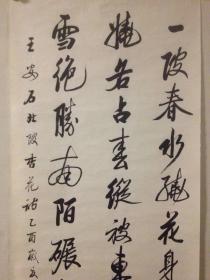 一陂春水繞花身
嬈各占春縱被東
雪絕勝南陌碾
王安石北陂杏花詩乙酉歲